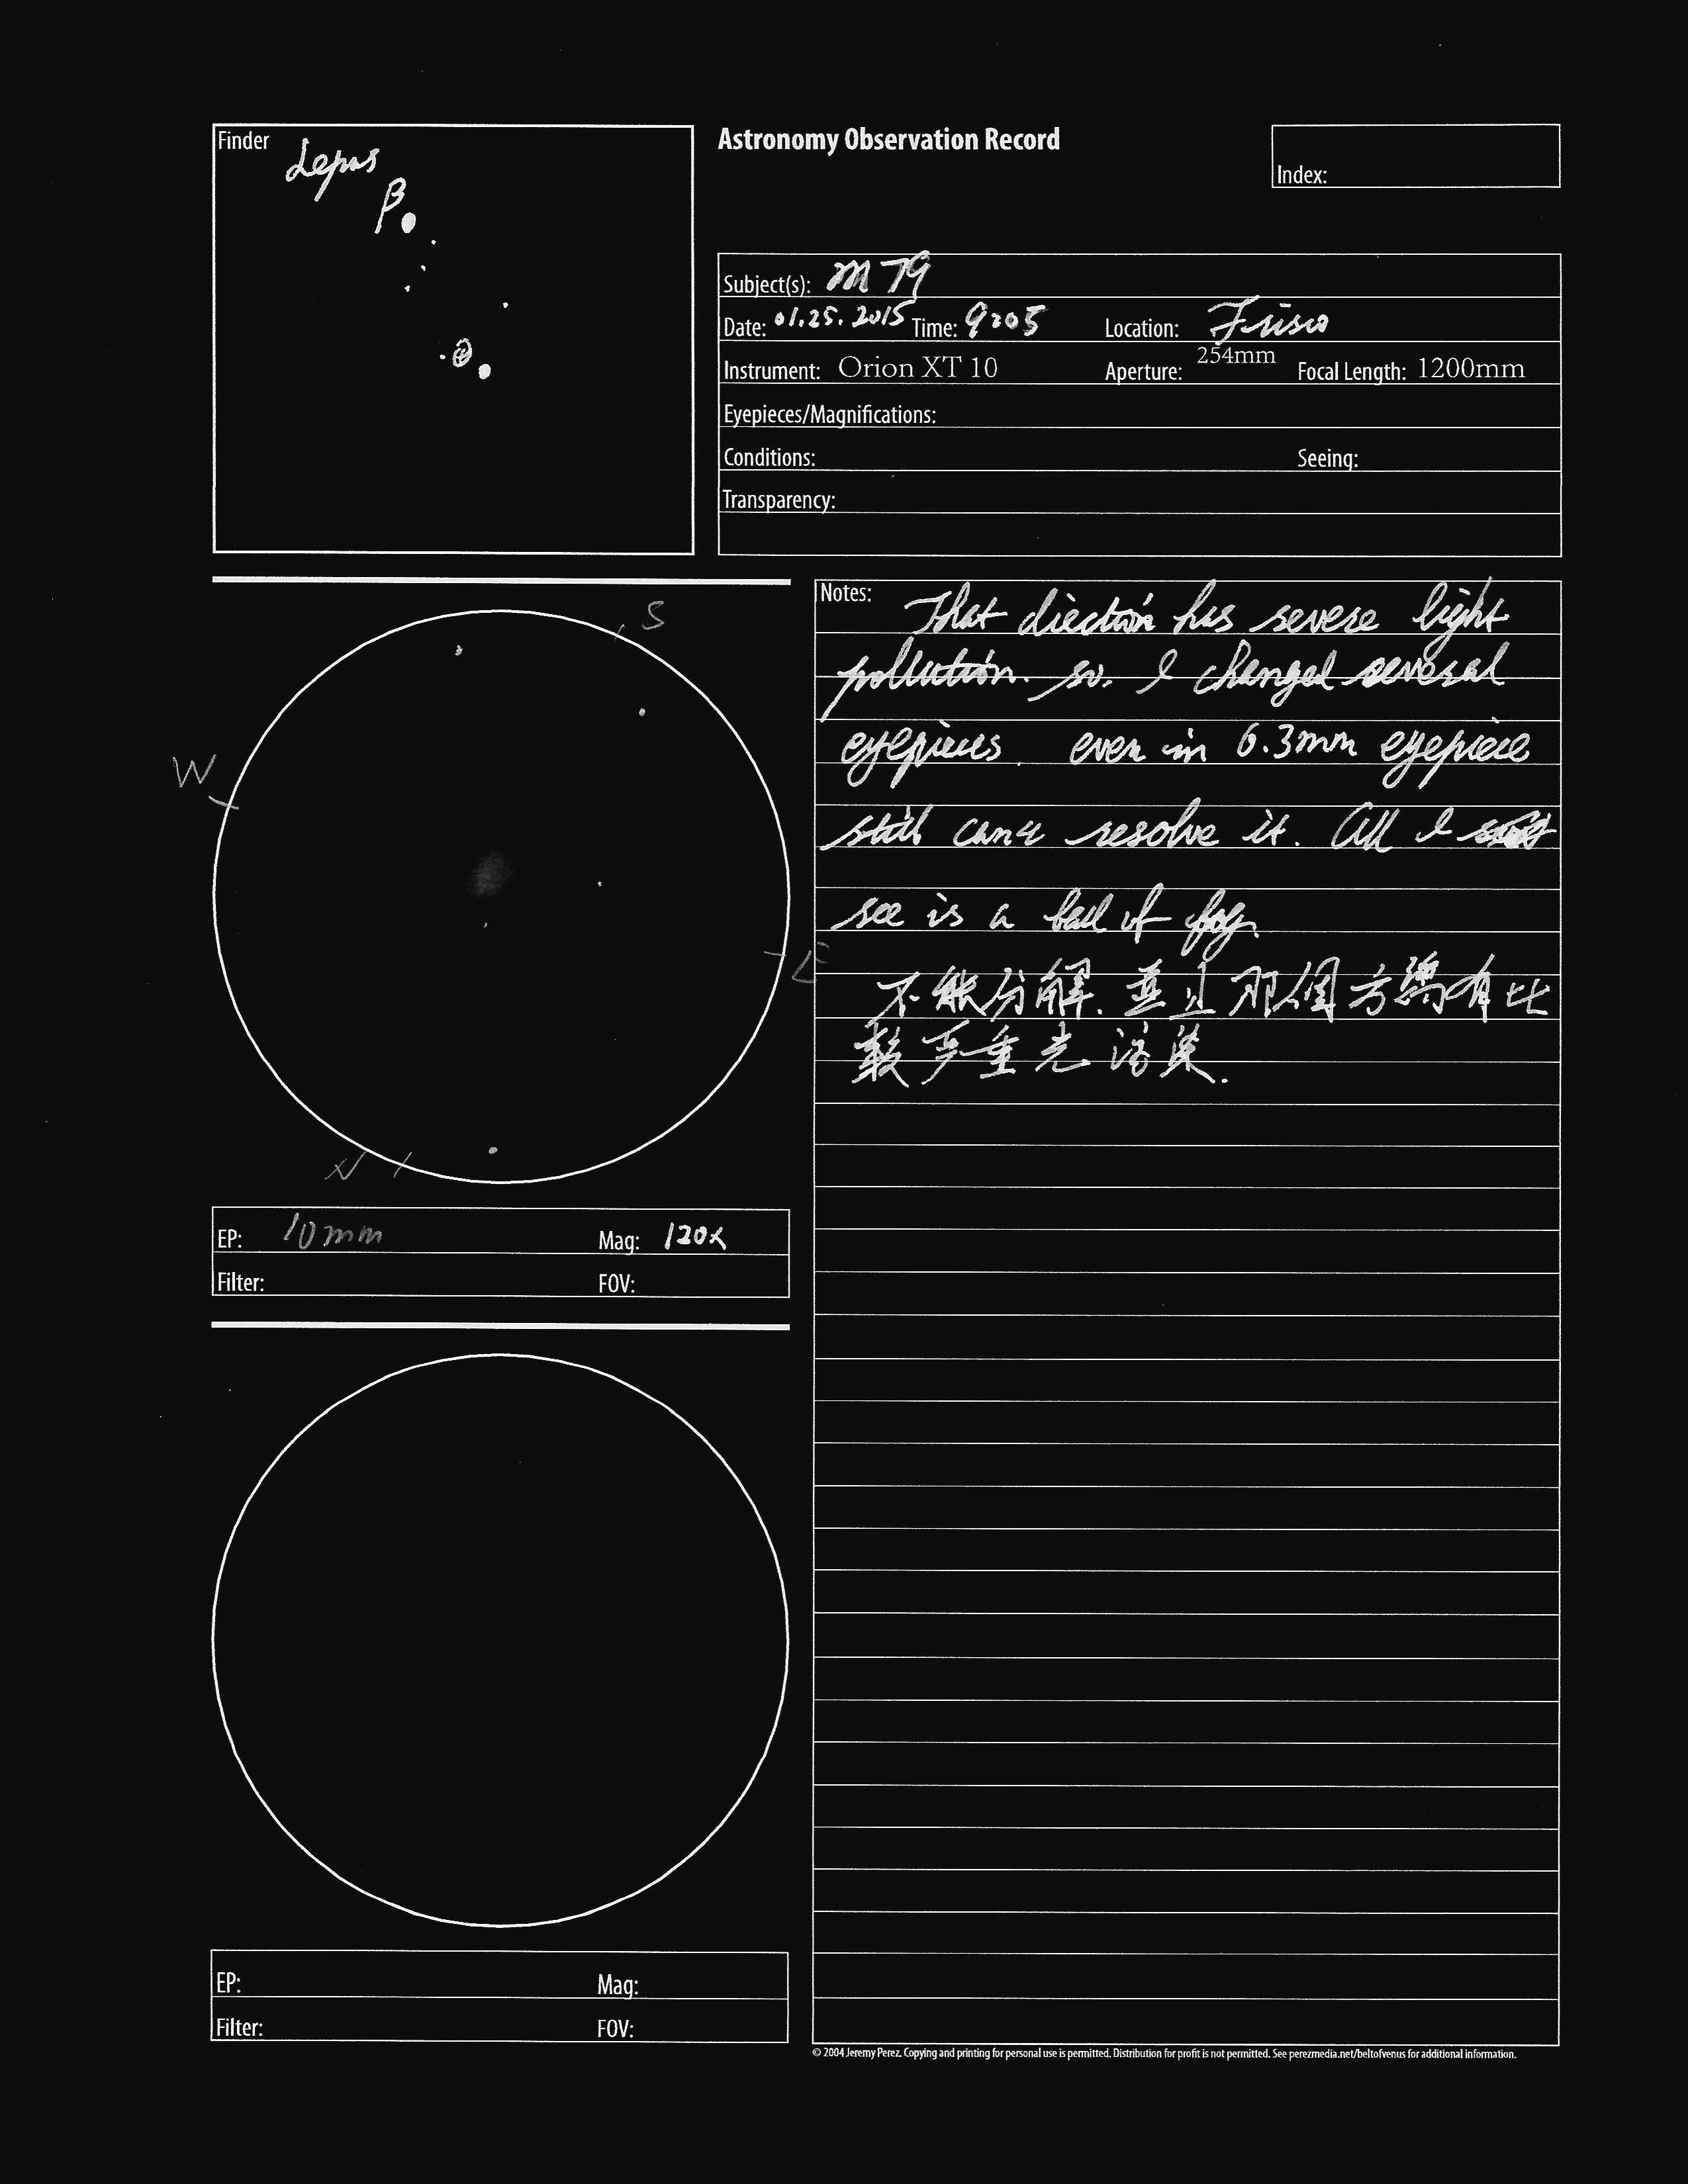 Finder
Lepus
β
Astronomy Observation Record
Index:
Subject(s): M 79
Date: 01.25.2015 Time: 9:05 Location: Frisco
Instrument: Orion XT 10 Aperture: 254mm Focal Length: 1200mm
Eyepieces/Magnifications:
Conditions: Seeing:
Transparency:
S
W
E
N
EP: 10mm Mag: 120x
Filter: FOV:
Notes: That diection has severe light
pollution. so. I changed several
eyepieces. even in 6.3mm eyepiece
still can't resolve it. All I
see is a ball of fog.
不能分解. 並且那個方嚮有比
較严重光污染.
EP: Mag:
Filter: FOV:
© 2004 Jeremy Perez. Copying and printing for personal use is permitted. Distribution for profit is not permitted. See perezmedia.net/beltofvenus for additional information.